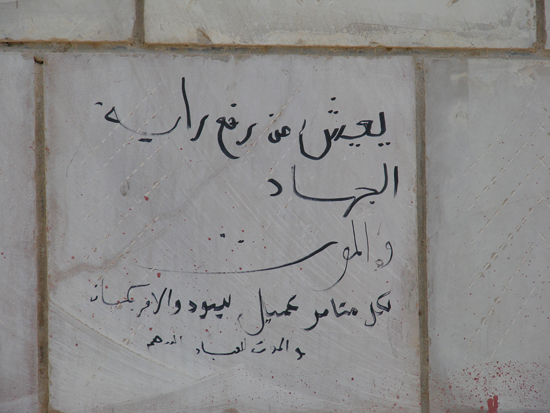 يعيش من رفع راية
الجهاد
والموت
لكل متامر عميل لليهود والامركيان
و الموت لعباد الدرهم